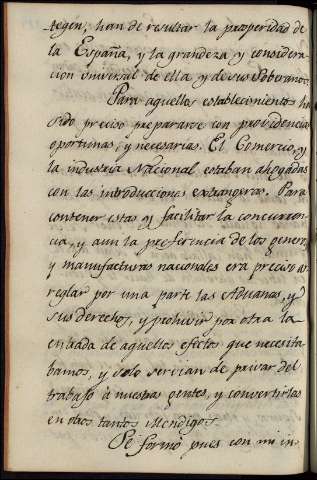 tegen, han de resultar la prosperidad de
la España, y la grandeza y considera-
cion universal de ella, y de sus Soberanos.
Para aquellos establecimientos ha
sido preciso prepararse con providencias
oportunas, y necesarias. El Comercio, y
la industria Nacional estaban ahogadas
con las introducciones extrangeras. Para
contener estas y facilitar la concurren-
cia, y aun la preferencia de los generos,
y manufacturas nacionales era preciso ar-
reglar por una parte las Aduanas, y
sus derechos, y prohivir por otra la
entrada de aquellos efectos que necesita-
bamos, y solo servian de privar del
trabajo à nuestras gentes, y convertirlas
en otros tantos Mendigos.
Se formó pues con mi in-